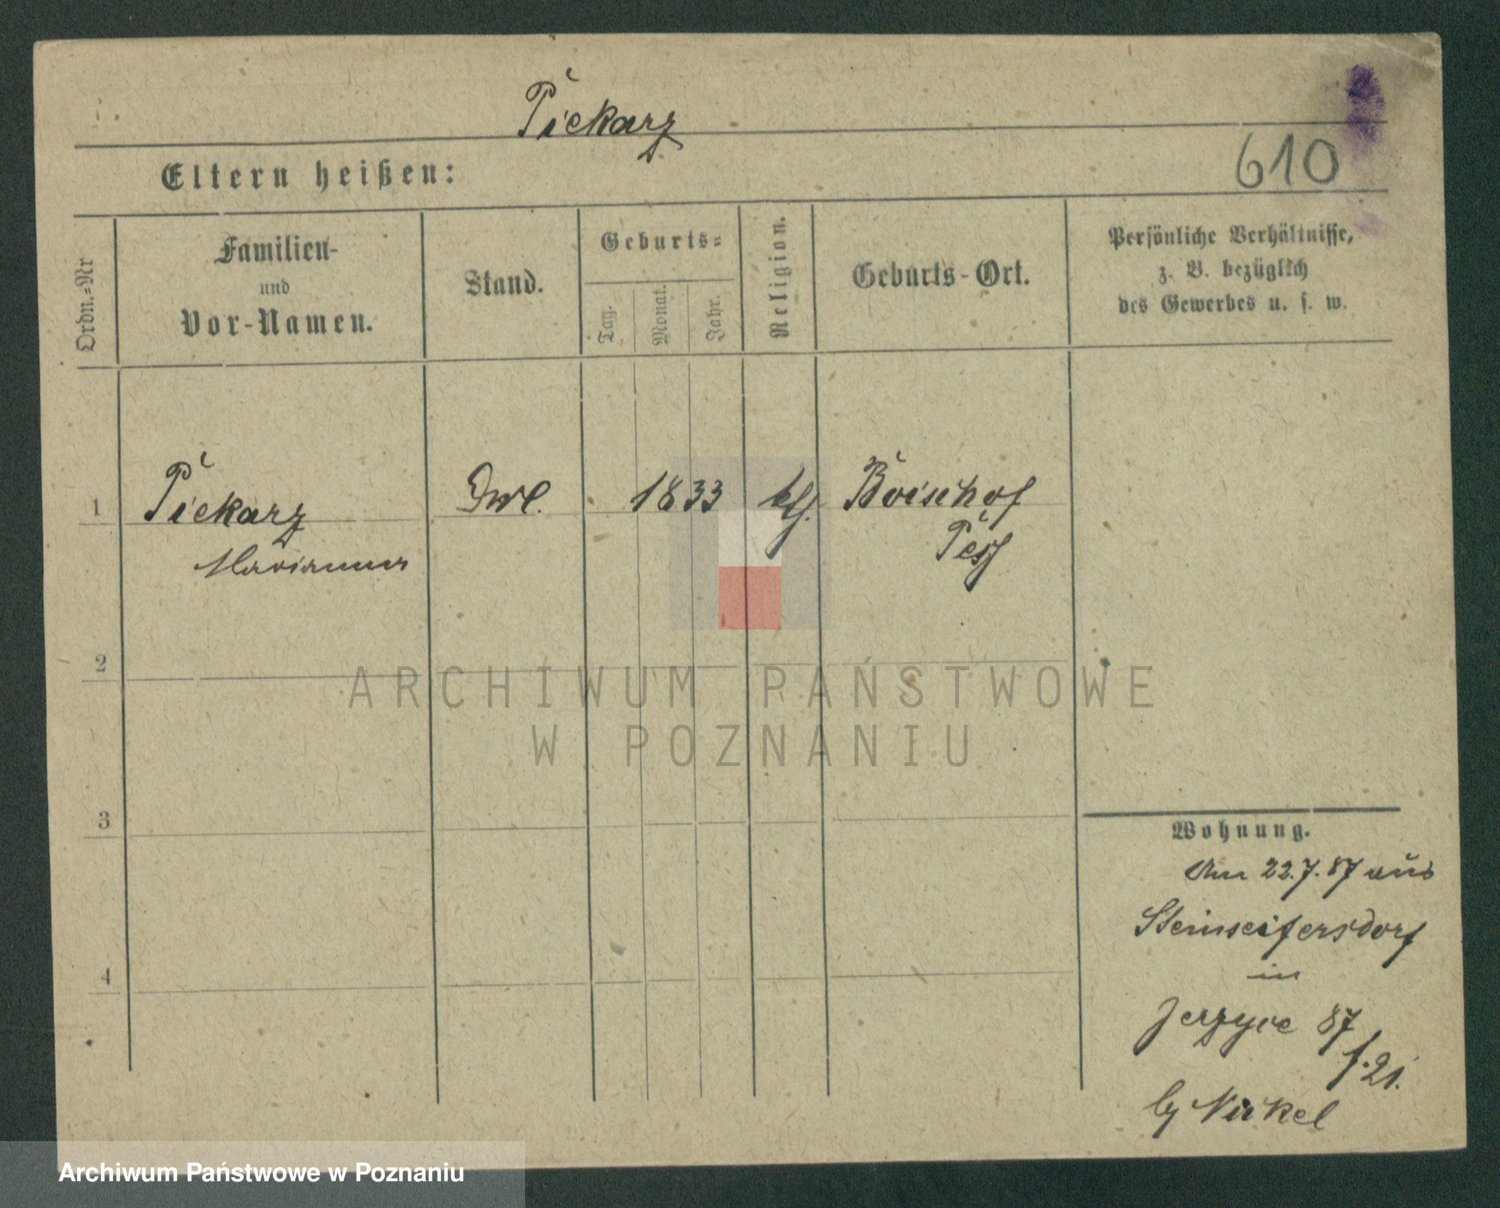 Piekarz
610
Eltern heißen:
Ordn.-Nr
Familien-
und
Vor-Namen.
Stand.
Geburts-
Tag.
Monat.
Jahr.
Religion.
Geburts-Ort.
Persönliche Verhältnisse,
z. B. bezüglich
des Gewerbes u. s. w.
1
Piekarz
Marianna
1833
Boischof
2
3
4
Wohnung.
Am 22.7.87 aus
Steinseifersdorf
in
Jerzyce 87
f. 21.
Nickel
ARCHIWUM PAŃSTWOWE
W POZNANIU
Archiwum Państwowe w Poznaniu